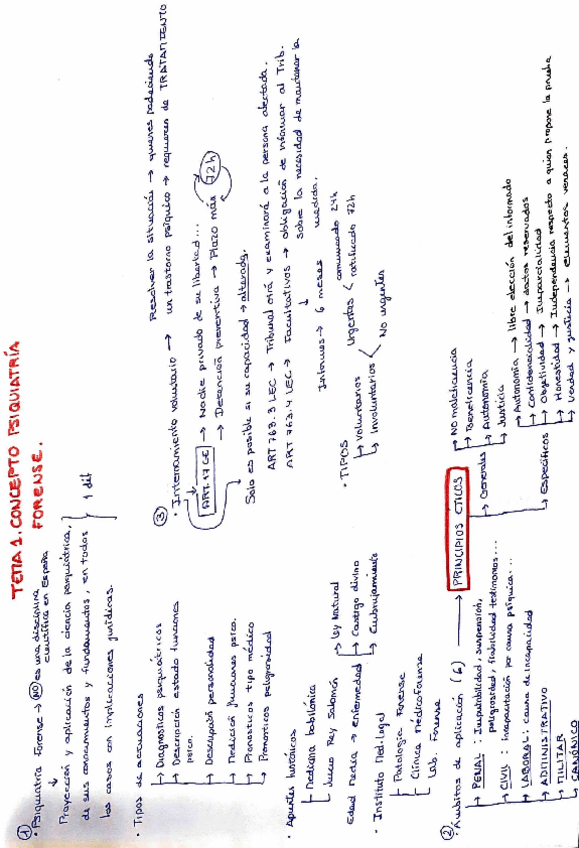 TEMA 1. CONCEPTO PSIQUIATRÍA
FORENSE.
①
• Psiquiatría Forense → NO es una disciplina
científica en España
↓
Proyección y aplicación de la ciencia psiquiátrica,
de sus conocimientos y fundamentos, en todos
los casos con implicaciones jurídicas.
} 1 dif
• Tipos de actuaciones
↳ Diagnósticos psiquiátricos
↳ Descripción estado funciones
psico.
↳ Descripción personalidad
↳ Medición funciones psico.
↳ Pronósticos tipo médico
↳ Pronósticos peligrosidad
• Apuntes históricos
Medicina babilónica
Juicio Rey Salomón
Edad Media → enfermedad
↳ Ley Natural
↳ Castigo divino
↳ Embrujamiento
• Instituto Med. legal
Patología Forense
Clínica Médico forense
Lab. Forense
②
• Ámbitos de aplicación (6) → PRINCIPIOS ÉTICOS
↳ PENAL: Imputabilidad, suspensión,
peligrosidad, fiabilidad testimonios...
↳ CIVIL: Incapacitación por causa psíquica...
↳ LABORAL: causa de incapacidad
↳ ADMINISTRATIVO
↳ MILITAR
↳ CANÓNICO
↳ Generales
→ No maleficencia
→ Beneficencia
→ Autonomía
↳ Justicia
↳ Específicos
→ Autonomía → libre elección del informado
→ Confidencialidad → datos reservados
→ Objetividad → Imparcialidad
→ Honestidad → Independencia respecto a quien propone la prueba
↳ Verdad y justicia → elementos veraces.
③
• Internamiento voluntario → Resolver la situación → quienes padeciendo
un trastorno psíquico → requieren de TRATAMIENTO
ART. 17 CE → Nadie privado de su libertad...
↳ Detención preventiva → Plazo máx 72h
Solo es posible si su capacidad → alterada.
ART 763.3 LEC → Tribunal oirá y examinará a la persona afectada.
ART 763.4 LEC → Facultativos → obligación de informar al Trib.
sobre la necesidad de mantener la
medida.
↓
Informes → 6 meses
• TIPOS
↳ Voluntarios
↳ Involuntarios
Urgentes < comunicado 24h
ratificado 72h
No urgentes